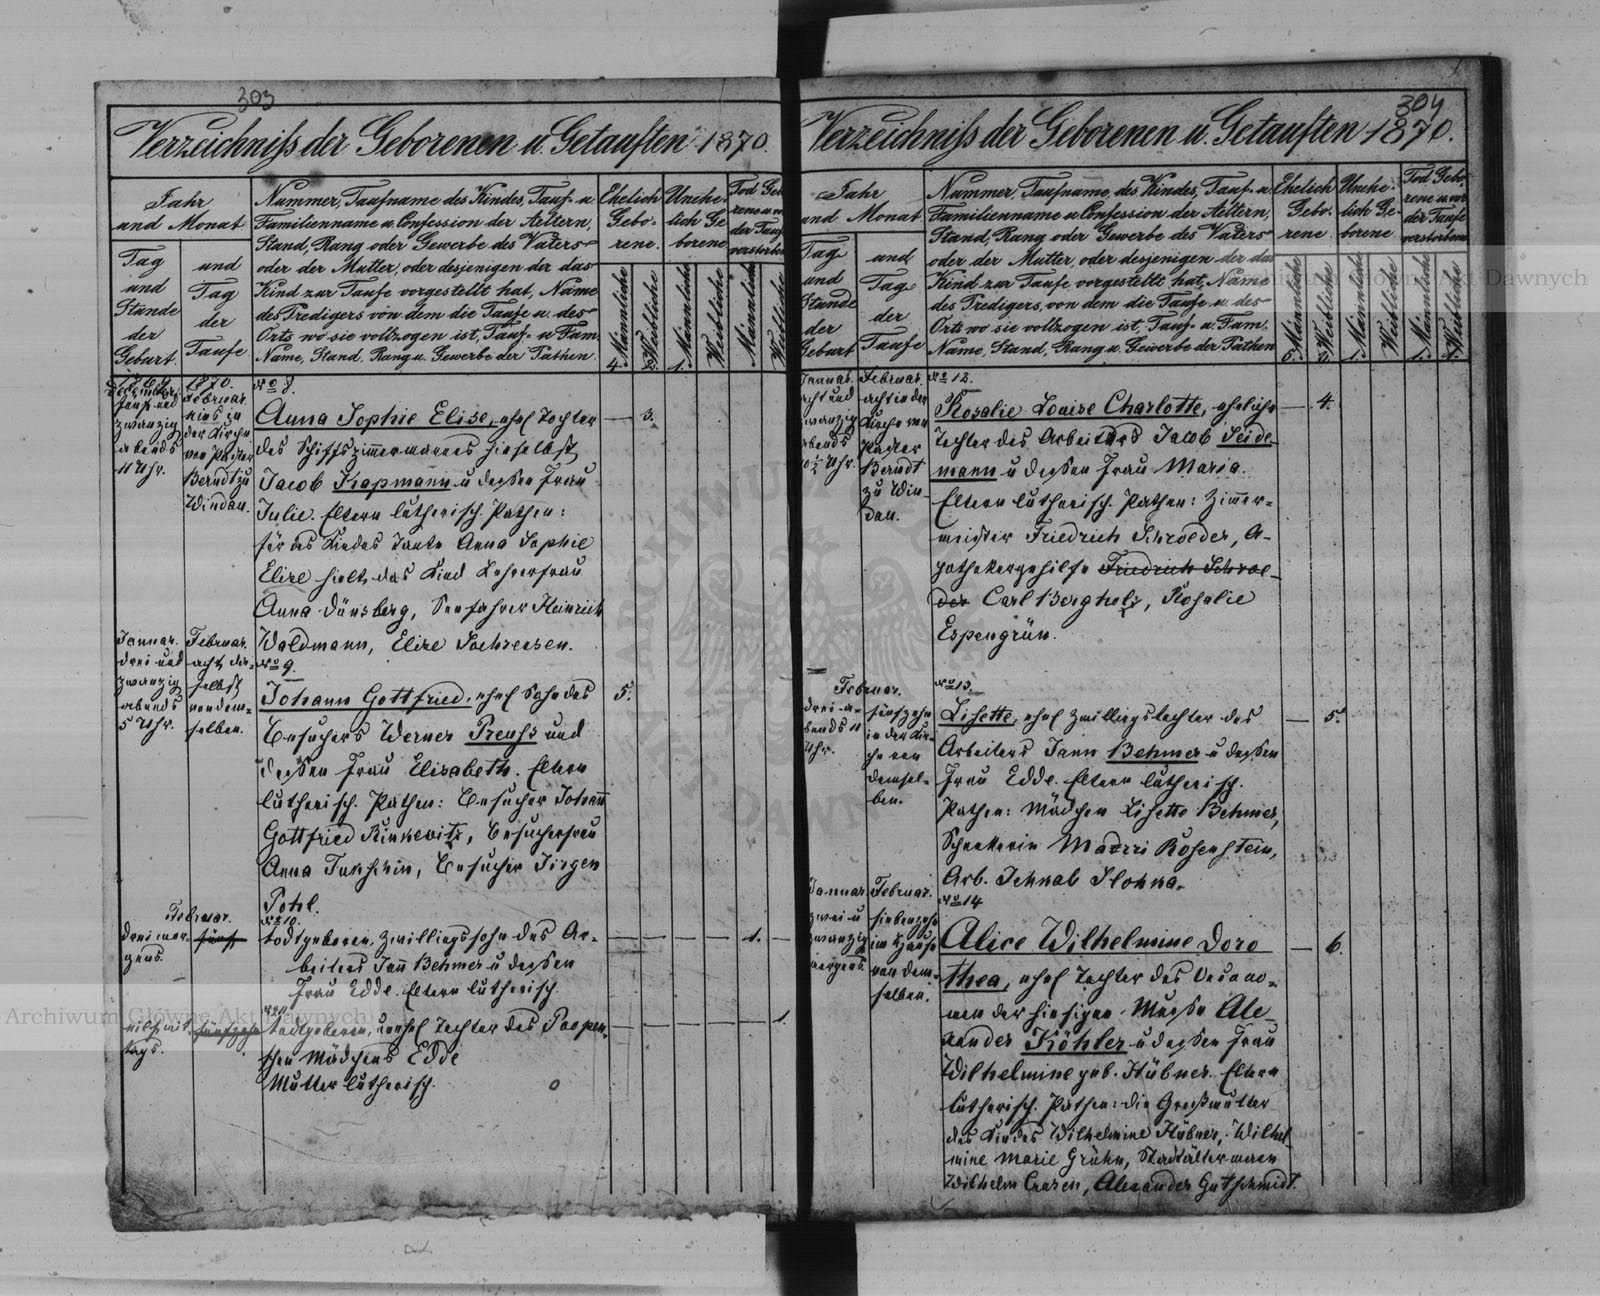 303
Verzeichniss der Geborenen u. Getauften 1870.
Jahr
und Monat
Tag
und
Stunde
der
Geburt.
und
Tag
der
Taufe
Nummer, Taufname des Kindes, Tauf- u
Familienname u Confession der Aeltern,
Stand, Rang oder Gewerbe des Vaters
oder der Mutter, oder desjenigen der das
Kind zur Taufe vorgestellt hat, Name
des Predigers von dem die Taufe u. des
Orts wo sie vollzogen ist, Tauf- u Fam.
Name, Stand, Rang u. Gewerbe der Pathen.
Ehelich
Gebo-
rene.
Unehe-
lich Ge
borene
Tod Geb
rene u vor
der Tauf
verstorben
Männliche
Weibliche
Männliche
Weibliche
Männliche
Weibliche
4. 2. 1.
1869 1870.
December
fünf und
zwanzig
abends
11 Uhr.
Februar.
eins in
der Kirche
von Pastor
Berndt zu
Windau.
No 8.
Anna Sophie Elise, ehel Tochter — 3.
des Schiffszimmermannes hieselbst
Jacob Kapmann u dessen Frau
Julie. Eltern lutherisch. Pathen:
für des Kindes Tante Anna Sophie
Elise hielt das Kind Lehrerfrau
Anna Dünsberg, Seefahrer Heinrich
Waldmann, Elise
Januar.
drei und
zwanzig
abends
5 Uhr.
Februar.
acht da-
selbst
von dem-
selben.
No 9.
Johann Gottfried, ehel Sohn des 5.
Besuchers Werner Preuss und
dessen Frau Elisabeth. Eltern
lutherisch. Pathen: Besucher Johann
Gottfried Rinkevitz, Besucherfrau
Anna, Besucher Jirgen
Pohl.
Februar.
drei mor-
gens.
fünf
No 10.
todtgeboren, Zwillingssohn des Ar- — — — — 1. —
beiters Jann Behmer u dessen
Frau Edde. Eltern lutherisch.
eilf mit
tags.
fünfzehn
No 11.
todtgeboren, unehel Tochter des Poopen- — — — — — 1.
schen Mädchens Edde
Mutter lutherisch.
304
Verzeichniss der Geborenen u. Getauften 1870.
Jahr
und Monat
Tag
und
Stunde
der
Geburt
und
Tag
der
Taufe
Nummer, Taufname, des Kindes, Tauf- u
Familienname u Confession der Aeltern,
Stand, Rang oder Gewerbe des Vaters
oder der Mutter, oder desjenigen der das
Kind zur Taufe vorgestellt hat, Name
des Predigers, von dem die Taufe u. des
Orts wo sie vollzogen ist, Tauf- u Fam.
Name, Stand, Rang u. Gewerbe der Pathen
Ehelich
Gebo-
rene.
Unehe-
lich Ge-
borene
Tod Gebo,
rene u vor
der Taufe
verstorbene
Männliche
Weibliche
Männliche
Weibliche
Männliche
Weibliche
5. 3. 1. 1. 1.
Januar.
acht und
zwanzig
abends
10 1/2 Uhr.
Februar.
acht in der
Kirche von
Pastor
Berndt
zu Win-
dau.
No 12.
Rosalie Louise Charlotte, eheliche — 4.
Tochter des Arbeiters Jacob Seide-
mann u dessen Frau Maria.
Eltern lutherisch. Pathen: Zimmer-
meister Friedrich Schroeder, A-
pothekergehilfe Friedrich Schroe-
der Carl Bergholz, Rosalie
Espengrün.
Februar.
drei a-
bends 11
Uhr.
fünfzehn
in der Kir-
che von
demsel-
ben.
No 13.
Lisette, ehel Zwillingstochter des — 5.
Arbeiters Jann Behmer u dessen
Frau Edde. Eltern lutherisch.
Pathen: Mädchen Lisette Behmer,
Schenkerin Rosenstein,
Arb. Schnab
Januar
zwei u
zwanzig
morgens.
Februar.
siebenzehn
im Hause
von dem-
selben.
No 14
Alice Wilhelmine Doro — 6.
thea, ehel Tochter des Oecono-
men der hiesigen Musse Ale-
xander Köhler u dessen Frau
Wilhelmine geb. Hübner. Eltern
lutherisch. Pathen: die Großmutter
des Kindes Wilhelmine Hübner, Wilhel
mine Marie Grühn, Stadtältermann
Wilhelm, Alexander Gutschmidt.
Archiwum Główne Akt Dawnych
Archiwum Główne Akt Dawnych